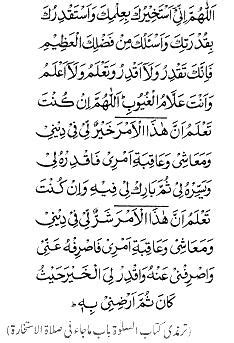 اَللّٰهُمَّ اِنِّيْ اَسْتَخِيْرُكَ بِعِلْمِكَ وَاَسْتَقْدِرُكَ
بِقُدْرَتِكَ وَاَسْئَلُكَ مِنْ فَضْلِكَ الْعَظِيْمِ
فَاِنَّكَ تَقْدِرُ وَلَا اَقْدِرُ وَتَعْلَمُ وَلَا اَعْلَمُ
وَاَنْتَ عَلَّامُ الْغُيُوْبِ اَللّٰهُمَّ اِنْ كُنْتَ
تَعْلَمُ اَنَّ هٰذَا الْاَمْرَ خَيْرٌ لِّيْ فِيْ دِيْنِيْ
وَمَعَاشِيْ وَعَاقِبَةِ اَمْرِيْ فَاقْدِرْهُ لِيْ
وَيَسِّرْهُ لِيْ ثُمَّ بَارِكْ لِيْ فِيْهِ وَاِنْ كُنْتَ
تَعْلَمُ اَنَّ هٰذَا الْاَمْرَ شَرٌّ لِّيْ فِيْ دِيْنِيْ
وَمَعَاشِيْ وَعَاقِبَةِ اَمْرِيْ فَاصْرِفْهُ عَنِّيْ
وَاصْرِفْنِيْ عَنْهُ وَاقْدِرْ لِيَ الْخَيْرَ حَيْثُ
كَانَ ثُمَّ اَرْضِنِيْ بِهٖ ؕ
(ترمذی کتاب السلوۃ باب ماجاء فی صلاۃ الاستخارۃ)